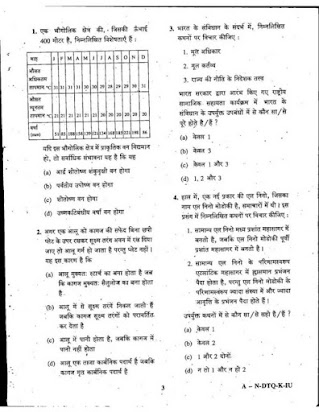 1. एक भौगोलिक क्षेत्र की, जिसकी ऊँचाई
400 मीटर है, निम्नलिखित विशेषताएँ हैं :
माह J F M A M J J A S O N D
औसत
अधिकतम
तापमान °C 31 31 31 30 30 29 28 29 29 29 30 31
औसत
न्यूनतम
तापमान °C 21 21
वर्षा
यदि इस भौगोलिक क्षेत्र में प्राकृतिक वन विद्यमान
हो, तो सर्वाधिक संभावना यह है कि वह
(a) आर्द्र शीतोष्ण शंकुवृक्षी वन होगा
(b) पर्वतीय उपोष्ण वन होगा
(c) शीतोष्ण वन होगा
(d) उष्णकटिबंधीय वर्षा वन होगा
2. अगर एक आलू को कागज की सफेद बिना छपी
प्लेट के ऊपर रखकर सूक्ष्म तरंग अवन में रख दिया
जाए तो आलू गर्म हो जाता है परन्तु प्लेट नहीं ।
यह इस कारण है कि
(a) आलू मुख्यतः स्टार्च का बना होता है जब
कि कागज मुख्यतः सैलुलोज का बना होता
है
(b) आलू में से सूक्ष्म तरंगें निकल जाती हैं
जबकि कागज सूक्ष्म तरंगों को परावर्तित
कर देता है
(c) आलू में पानी होता है, जबकि कागज में
पानी नहीं होता
(d) आलू एक ताजा कार्बनिक पदार्थ है जबकि
कागज मृत कार्बनिक पदार्थ है
3. भारत के संविधान के संदर्भ में, निम्नलिखित
कथनों पर विचार कीजिए :
1. मूल अधिकार
2. मूल कर्तव्य
3. राज्य की नीति के निदेशक तत्त्व
भारत सरकार द्वारा आरंभ किए गए राष्ट्रीय
सामाजिक सहायता कार्यक्रम में भारत के
संविधान के उपर्युक्त उपबंधों में से कौन सा/से
पूरे होते है/हैं ?
(a) केवल 1
(b) केवल 3
(c) केवल 1 और 3
(d) 1, 2 और 3
4. हाल में, एक नई प्रकार की एल निनो, जिसका
नाम एल निनो मोडोकी है, समाचारों में थी । इस
प्रसंग में निम्नलिखित कथनों पर विचार कीजिए :
1. सामान्य एल निनो मध्य प्रशांत महासागर में
बनती है, जबकि एल निनो मोडोकी पूर्वी
प्रशांत महासागर में बनती है ।
2. सामान्य एल निनो के परिणामस्वरूप
एटलांटिक महासागर में ह्रासमान प्रभंजन
पैदा होता है, परन्तु एल निनो मोडोकी के
परिणामस्वरूप ज्यादा संख्या में और ज्यादा
आवृत्ति के प्रभंजन पैदा होते हैं ।
उपर्युक्त कथनों में से कौन सा/से सही है/हैं ?
(a) केवल 1
(b) केवल 2
(c) 1 और 2 दोनों
(d) न तो 1 और न ही 2
3
A – N-DTQ-K-IU